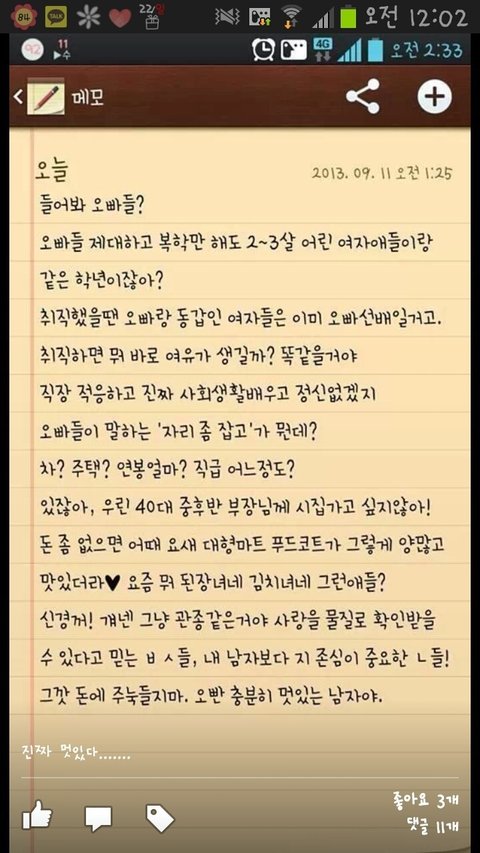 84
TALK
22/일
오전 12:02
92
11
▶수
4G
오전 2:33
메모
오늘
2013. 09. 11 오전 1:25
들어봐 오빠들?
오빠들 제대하고 복학만 해도 2~3살 어린 여자애들이랑
같은 학년이잖아?
취직했을땐 오빠랑 동갑인 여자들은 이미 오빠선배일거고.
취직하면 뭐 바로 여유가 생길까? 똑같을거야
직장 적응하고 진짜 사회생활배우고 정신없겠지
오빠들이 말하는 '자리 좀 잡고'가 뭔데?
차? 주택? 연봉얼마? 직급 어느정도?
있잖아, 우린 40대 중후반 부장님께 시집가고 싶지않아!
돈 좀 없으면 어때 요새 대형마트 푸드코트가 그렇게 양많고
맛있더라♥ 요즘 뭐 된장녀네 김치녀네 그런애들?
신경꺼! 걔넨 그냥 관종같은거야 사랑을 물질로 확인받을
수 있다고 믿는 ㅂㅅ들, 내 남자보다 지 존심이 중요한 ㄴ들!
그깟 돈에 주눅들지마. 오빤 충분히 멋있는 남자야.
진짜 멋있다.......
좋아요 3개
댓글 11개